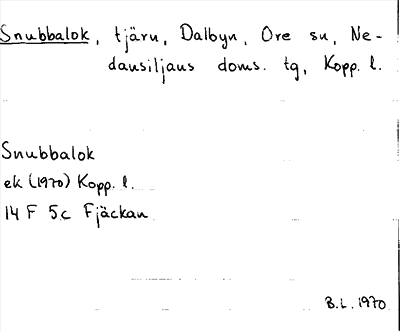 Snubbalok, tjärn, Dalbyn, Ore sn, Ne-
dansiljans doms. tg, Kopp. l.
Snubbalok
ek (1970) Kopp. l.
14 F 5c Fjäckan
B.L. 1970